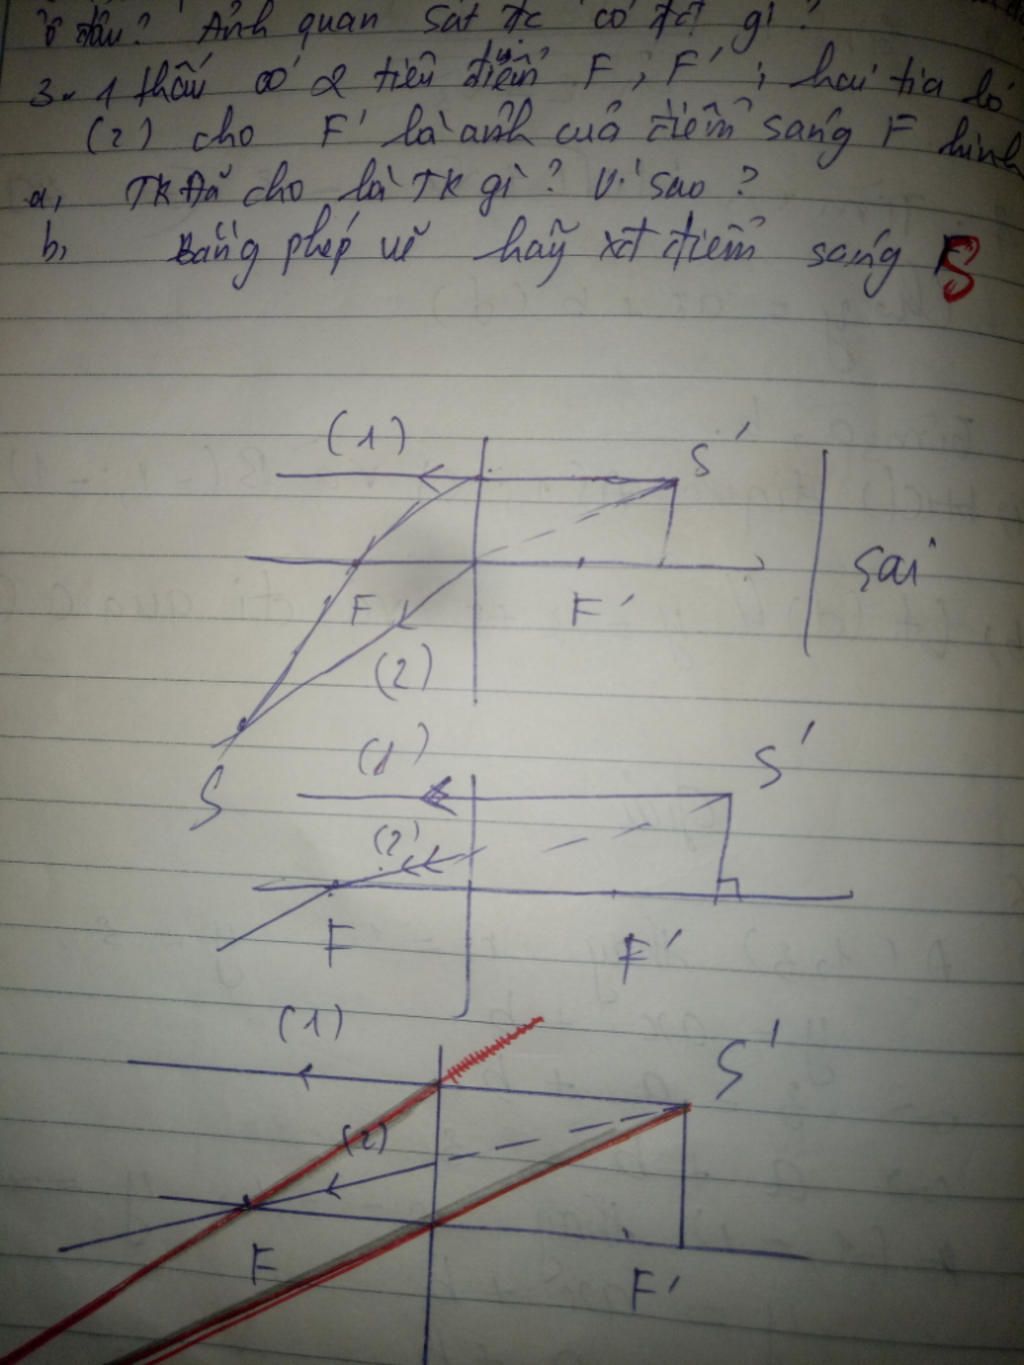 ở đâu? Ảnh quan sát đc có đđ gì?
3. 1 thấu có 2 tiêu điểm F, F', hai tia ló
(2) cho F' là ảnh của điểm sáng F hình
a, TK Đã cho là TK gì? Vì sao?
b, Bằng phép vẽ hãy xđ điểm sáng S
(1) S'
sai
F F'
(2)
S
(1) S'
(2)
F F'
(1) S'
(2)
F F'